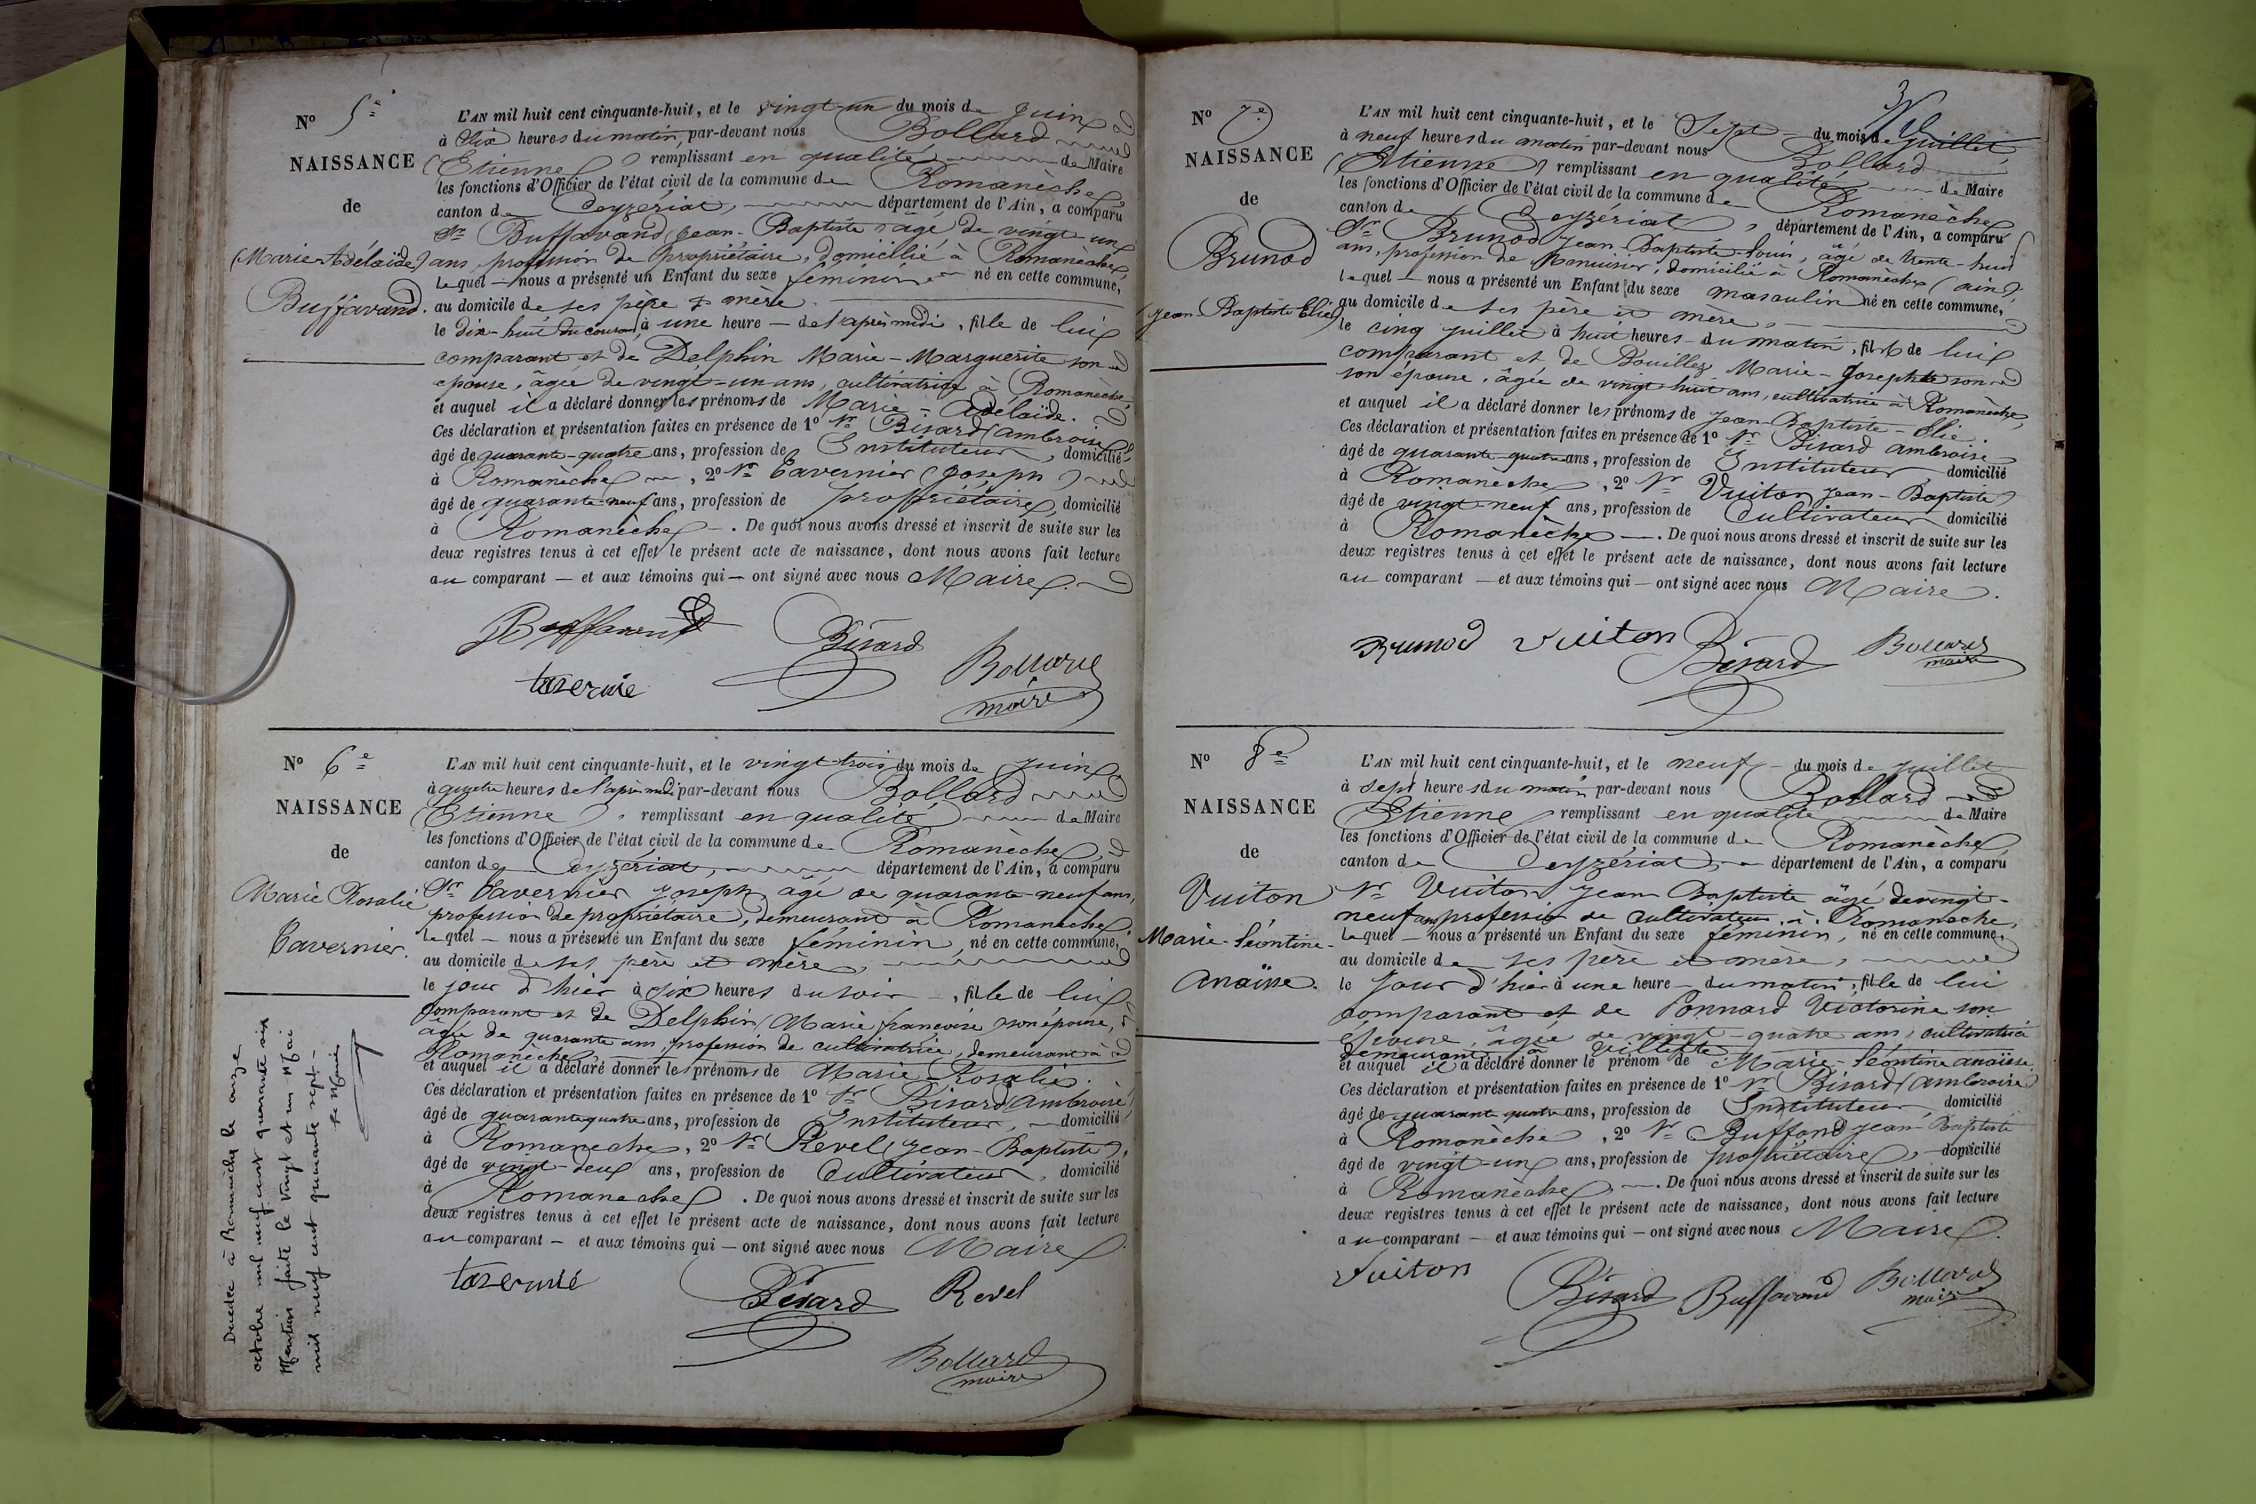 No 5e
NAISSANCE
de
(Marie Adélaïde)
Buffavand.
L'AN mil huit cent cinquante-huit, et le vingt-un du mois de Juin
à dix heures du matin, par-devant nous Bollard
(Etienne) remplissant en qualité de Maire
les fonctions d'Officier de l'état civil de la commune de Romanèche,
canton de Ceyzériat, département de l'Ain, a comparu
Sr Buffavand (Jean-Baptiste) âgé de vingt-un
ans, profession de Propriétaire, domicilié à Romanèche,
lequel — nous a présenté un Enfant du sexe féminin né en cette commune,
au domicile de ses père & mère
le dix-huit du courant à une heure — de l'après midi, fille de lui
comparant et de Delphin Marie-Marguerite son
épouse, âgée de vingt-un ans, cultivatrice à Romanèche,
et auquel il a déclaré donner les prénoms de Marie-Adélaïde.
Ces déclaration et présentation faites en présence de 1o Sr Bisard (Ambroise)
âgé de quarante-quatre ans, profession de Instituteur, domicilié
à Romanèche, 2o Sr Tavernier (Joseph)
âgé de quarante-neuf ans, profession de propriétaire, domicilié
à Romanèche —. De quoi nous avons dressé et inscrit de suite sur les
deux registres tenus à cet effet le présent acte de naissance, dont nous avons fait lecture
au comparant — et aux témoins qui — ont signé avec nous Maire.
Bisard
Bollard
maire
No 6e
NAISSANCE
de
Marie Rosalie
Tavernier.
L'AN mil huit cent cinquante-huit, et le vingt-trois du mois de Juin
à quatre heures de l'après midi par-devant nous Bollard
(Etienne), remplissant en qualité de Maire
les fonctions d'Officier de l'état civil de la commune de Romanèche,
canton de Ceyzériat, département de l'Ain, a comparu
Sr Tavernier Joseph âgé de quarante-neuf ans,
profession de propriétaire, demeurant à Romanèche,
lequel — nous a présenté un Enfant du sexe féminin, né en cette commune,
au domicile de ses père et mère,
le jour d'hier à six heures du soir —, fille de lui
comparant et de Delphin (Marie françoise) son épouse,
âgée de quarante ans, profession de cultivatrice, demeurant à
Romanèche
et auquel il a déclaré donner les prénoms de Marie Rosalie.
Ces déclaration et présentation faites en présence de 1o Sr Bisard (Ambroise)
âgé de quarante quatre ans, profession de Instituteur, domicilié
à Romanèche, 2o Sr Revel (Jean-Baptiste),
âgé de vingt-deux ans, profession de Cultivateur, domicilié
à Romaneche. De quoi nous avons dressé et inscrit de suite sur les
deux registres tenus à cet effet le présent acte de naissance, dont nous avons fait lecture
au comparant — et aux témoins qui — ont signé avec nous Maire.
Bisard Revel
Bollard
maire
Décédée à Romanèche le onze
octobre mil neuf cent quarante six
Mention faite le vingt et un Mai
mil neuf cent quarante sept -
Le Maire
No 7e
NAISSANCE
de
Brunod
(Jean Baptiste Elie)
L'AN mil huit cent cinquante-huit, et le Sept du mois de juillet,
à neuf heures du matin par-devant nous Bollard
(Etienne) remplissant en qualité de Maire
les fonctions d'Officier de l'état civil de la commune de Romanèche
canton de Ceyzériat, département de l'Ain, a comparu
Sr Brunod Jean-Baptiste-Louis, âgé de trente-huit
ans, profession de Menuisier, domicilié à Romanèche (ain),
lequel — nous a présenté un Enfant du sexe masculin né en cette commune,
au domicile de ses père et mère,
le cinq juillet à huit heures du matin, fils de lui
comparant et de Bouillez Marie-Josephte son
son épouse, âgée de vingt huit ans, cultivatrice à Romanèche,
et auquel il a déclaré donner les prénoms de Jean-Baptiste-Elie.
Ces déclaration et présentation faites en présence de 1o Sr Bisard Ambroise
âgé de quarante quatre ans, profession de Instituteur domicilié
à Romanèche, 2o Sr Vuiton Jean-Baptiste
âgé de vingt neuf ans, profession de Cultivateur domicilié
à Romanèche —. De quoi nous avons dressé et inscrit de suite sur les
deux registres tenus à cet effet le présent acte de naissance, dont nous avons fait lecture
au comparant — et aux témoins qui — ont signé avec nous Maire.
Brunod Vuiton Bisard Bollard
maire
No 8e
NAISSANCE
de
Vuiton
Marie-Léontine-
Anaïse.
L'AN mil huit cent cinquante-huit, et le neuf du mois de juillet
à sept heures du matin par-devant nous Bollard
(Etienne) remplissant en qualité de Maire
les fonctions d'Officier de l'état civil de la commune de Romanèche
canton de Ceyzériat, département de l'Ain, a comparu
Sr Vuiton Jean Baptiste âgé de vingt-
neuf ans profession de Cultivateur à Romanèche,
lequel — nous a présenté un Enfant du sexe féminin, né en cette commune,
au domicile de ses père et mère,
le Jour d'hier à une heure — du matin, fille de lui
comparant et de Ponnard Victorine son
épouse, âgée de vingt-quatre ans, cultivatrice
demeurant à Villette
et auquel il a déclaré donner le prénom de Marie-Léontine anaïse.
Ces déclaration et présentation faites en présence de 1o Sr Bisard (Ambroise)
âgé de quarante quatre ans, profession de Instituteur, domicilié
à Romanèche, 2o Sr Buffand Jean-Baptiste
âgé de vingt-un ans, profession de propriétaire, domicilié
à Romanèche —. De quoi nous avons dressé et inscrit de suite sur les
deux registres tenus à cet effet le présent acte de naissance, dont nous avons fait lecture
au comparant — et aux témoins qui — ont signé avec nous Maire.
Vuiton Bisard Buffavand Bollard
maire